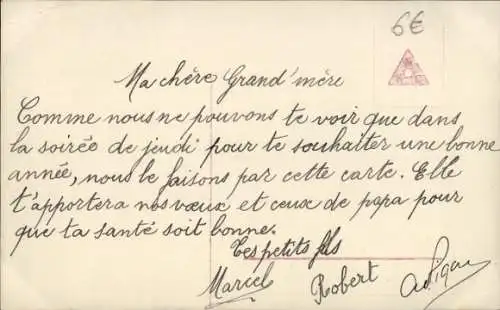 6€
Ma chère Grand'mère
Comme nous ne pouvons te voir que dans
la soirée de jeudi pour te souhaiter une bonne
année, nous le faisons par cette carte. Elle
t'apportera nos vœux et ceux de papa pour
que ta santé soit bonne.
Tes petits fils
Marcel Robert